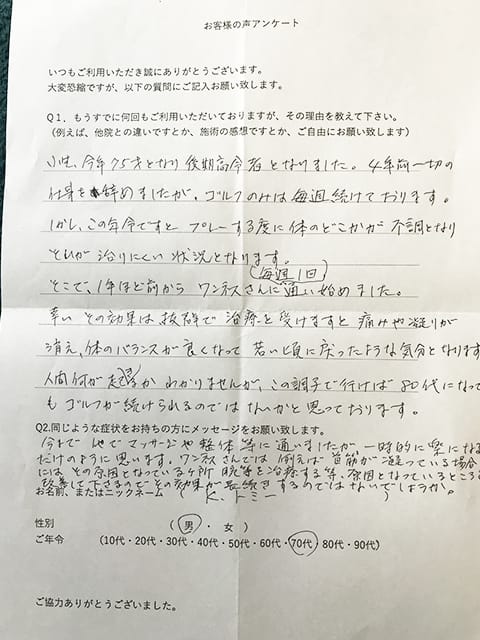 お客様の声アンケート
いつもご利用いただき誠にありがとうございます。
大変恐縮ですが、以下の質問にご記入お願い致します。
Q1．もうすでに何回もご利用いただいておりますが、その理由を教えて下さい。
（例えば、他院との違いですとか、施術の感想ですとか、ご自由にお願い致します）
小生、今年75才となり後期高令者となりました。4年前一切の
仕事を辞めましたが、ゴルフのみは毎週続けております。
しかし、この年令ですとプレーする度に体のどこかが不調となり
それが治りにくい状況となります。
（毎週1回）
そこで、1年ほど前からワンネスさんに通い始めました。
幸いその効果は抜群で治療を受けますと痛みや凝りが
消え、体のバランスが良くなって若い頃に戻ったような気分となります
人間何が起るかわかりませんが、この調子で行けば80代になって
もゴルフが続けられるのではないかと思っております。
Q2.同じような症状をお持ちの方にメッセージをお願い致します。
今まで他でマッサージや整体等に通いましたが一時的に楽になる
だけのように思います。ワンネスさんでは例えば首筋が凝っている場合
にはその原因となっているヶ所、腕等を治療する等、原因となっているところを
改善して下さるのでその効果が長続きするのではないでしょうか。
お名前、またはニックネーム（K.トミー）
性別 （男・女）
ご年令 （10代・20代・30代・40代・50代・60代・70代・80代・90代）
ご協力ありがとうございました。